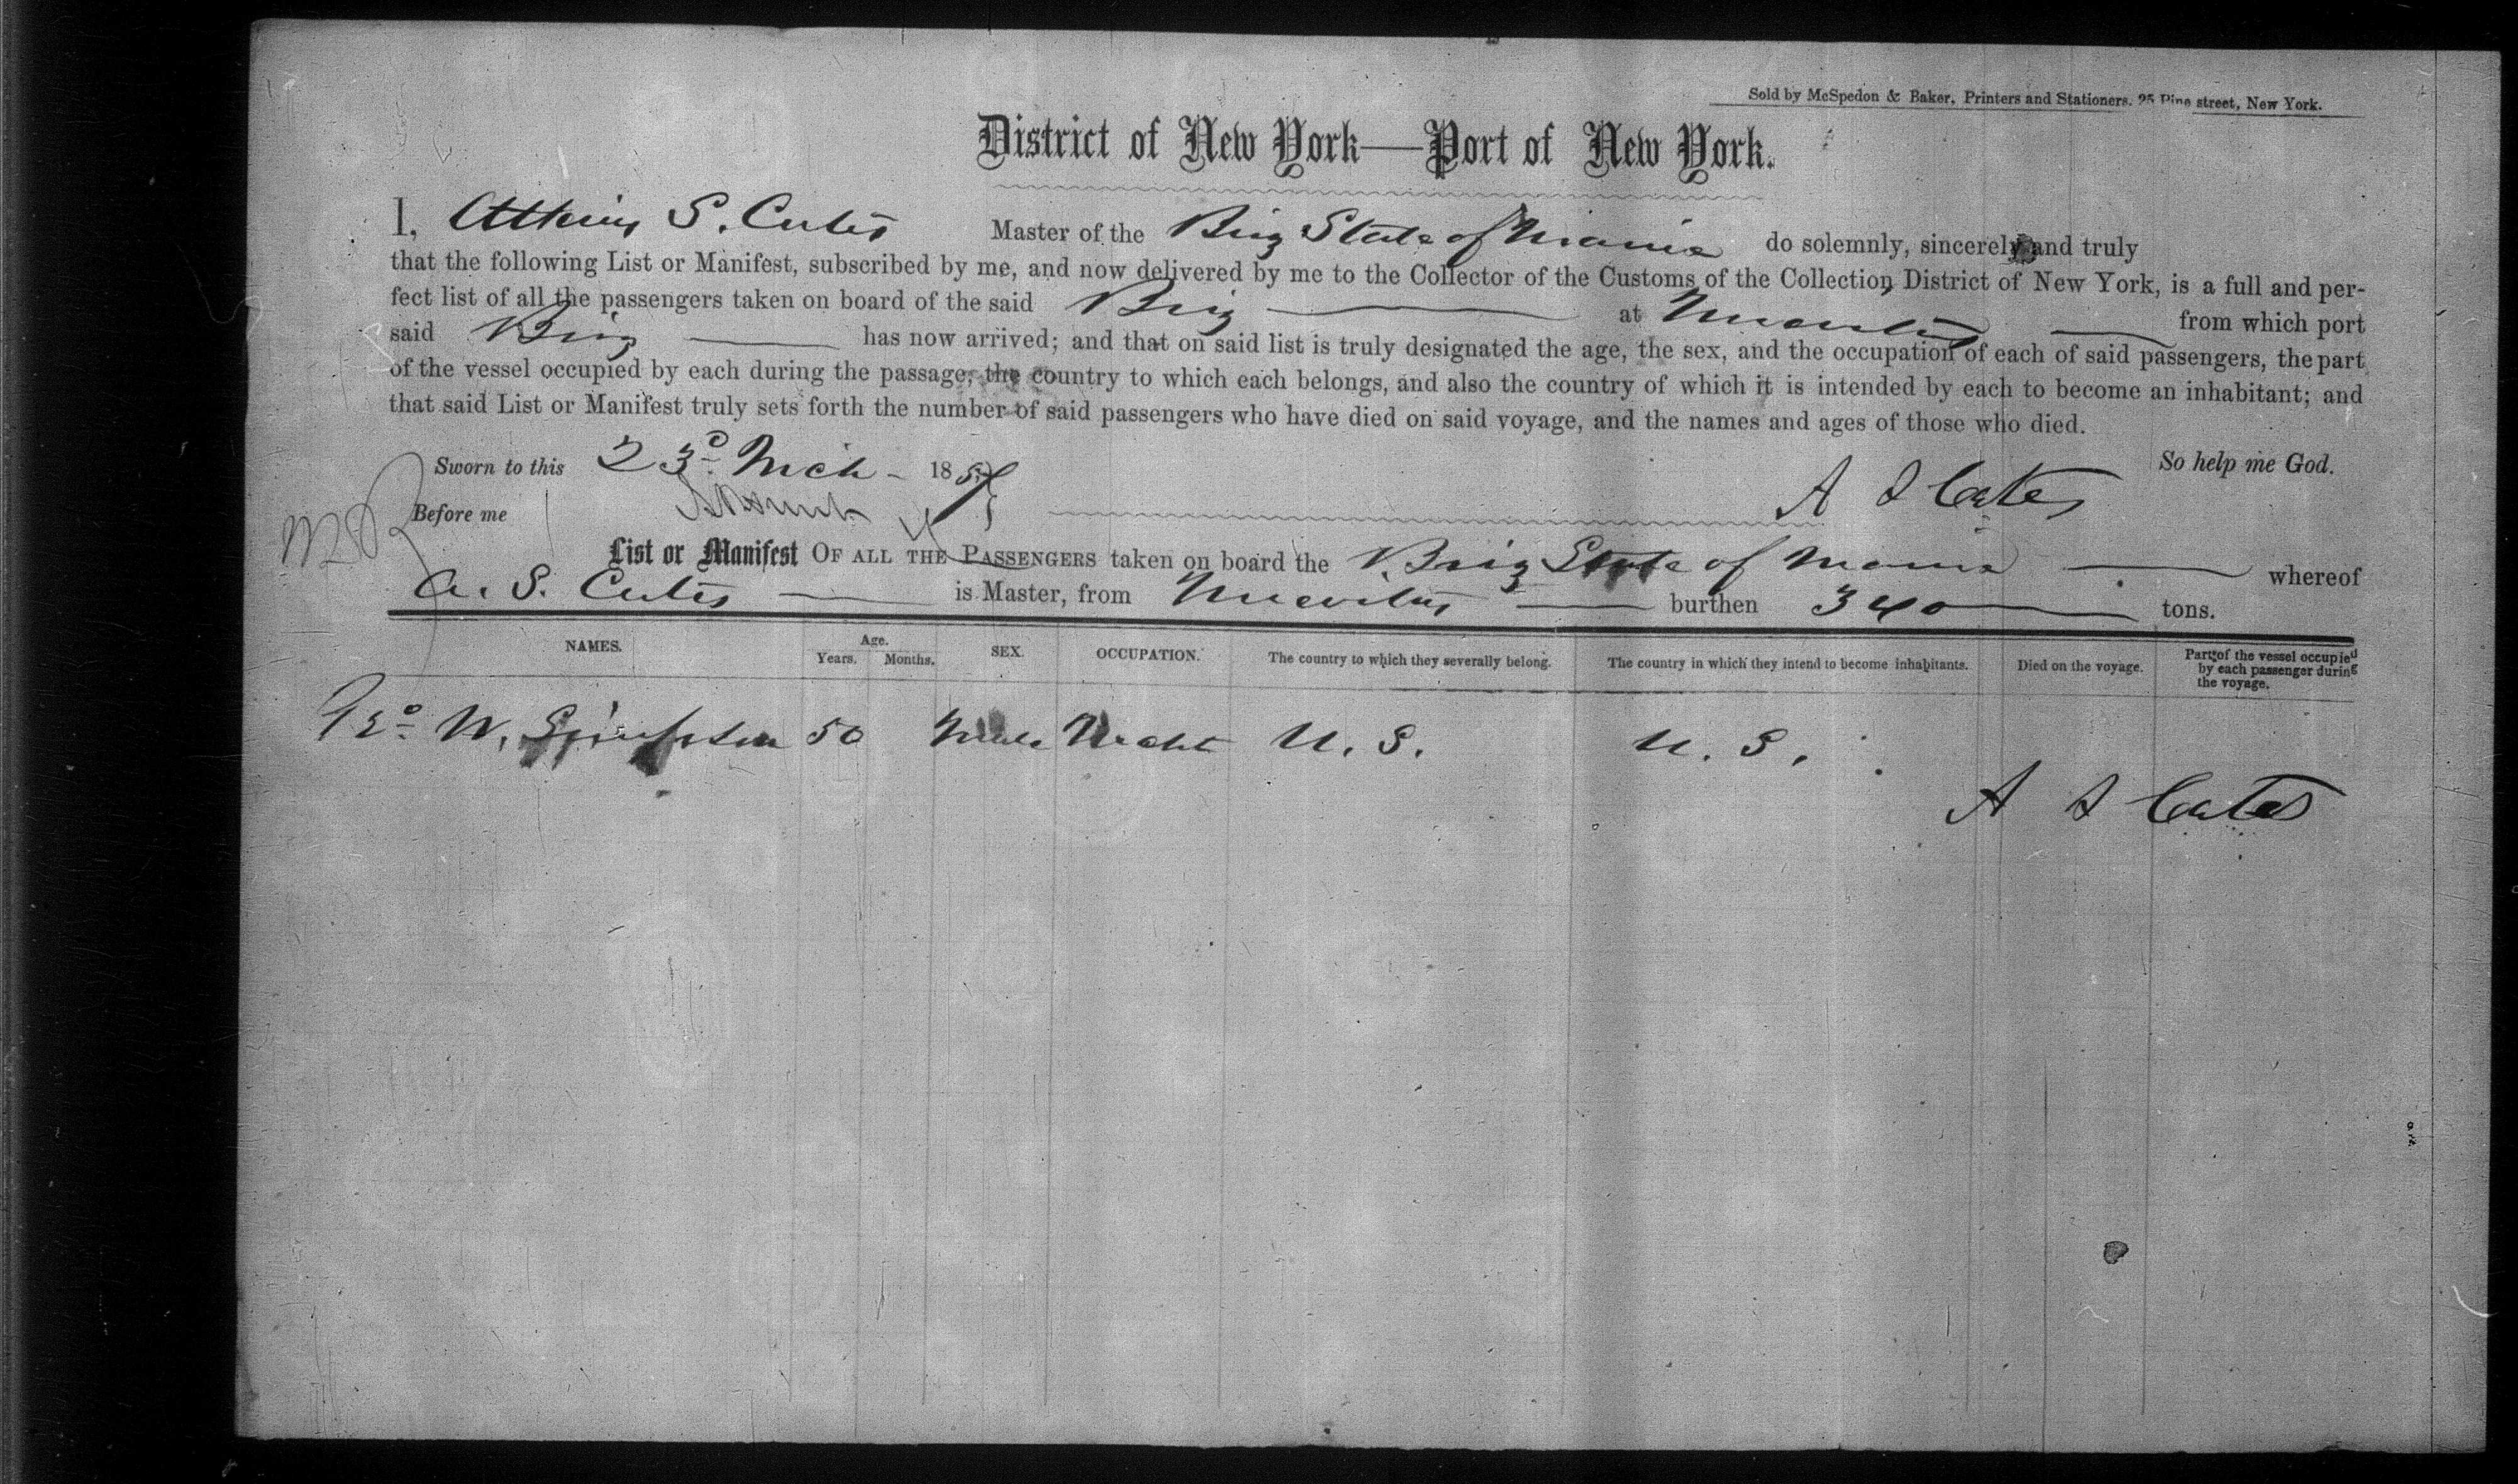 Sold by McSpedon & Baker, Printers and Stationers, 25 Pine street, New York.
District of New York—Port of New York.
I, Atkins S. Cates Master of the Brig State of Maine do solemnly, sincerely and truly
that the following List or Manifest, subscribed by me, and now delivered by me to the Collector of the Customs of the Collection District of New York, is a full and per-
fect list of all the passengers taken on board of the said Brig at Nuevitas from which port
said Brig has now arrived; and that on said list is truly designated the age, the sex, and the occupation of each of said passengers, the part
of the vessel occupied by each during the passage, the country to which each belongs, and also the country of which it is intended by each to become an inhabitant; and
that said List or Manifest truly sets forth the number of said passengers who have died on said voyage, and the names and ages of those who died.
Sworn to this 23d Mch 1857 So help me God.
Before me A S Cates
List or Manifest OF ALL THE PASSENGERS taken on board the Brig State of Maine whereof
A. S. Cates is Master, from Nuevitas burthen 340 tons.
NAMES. Age. Years. Months. SEX. OCCUPATION. The country to which they severally belong. The country in which they intend to become inhabitants. Died on the voyage. Part of the vessel occupied by each passenger during the voyage.
Geo W. Simpson 50 Male Mcht U. S. U. S.
A S Cates